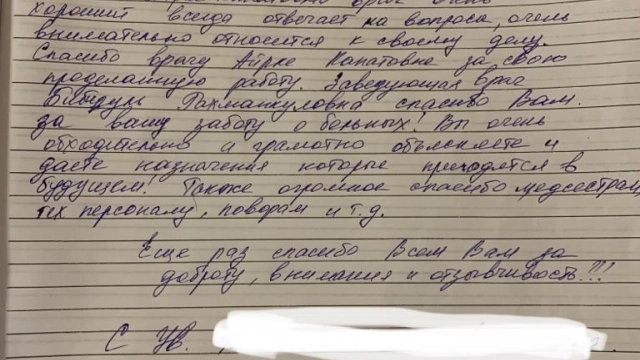 хороший всегда отвечает на вопроса, очень
внимательно относится к своему делу.
Спасибо врачу Айрке Канатовне за свою
проделанную работу. Заведующая врач
Бибигуль Рахманкуловна спасибо Вам.
за вашу заботу о больных! Вы очень
обходительно а грамотно объясняете и
даете назначения которые пригодятся в
будущем! Также огромное спасибо медсестрам,
тех персоналу, поворам и т.д.
Еще раз спасибо Всем Вам за
доброту, внимания и отзывчивость!!!
С Ув.